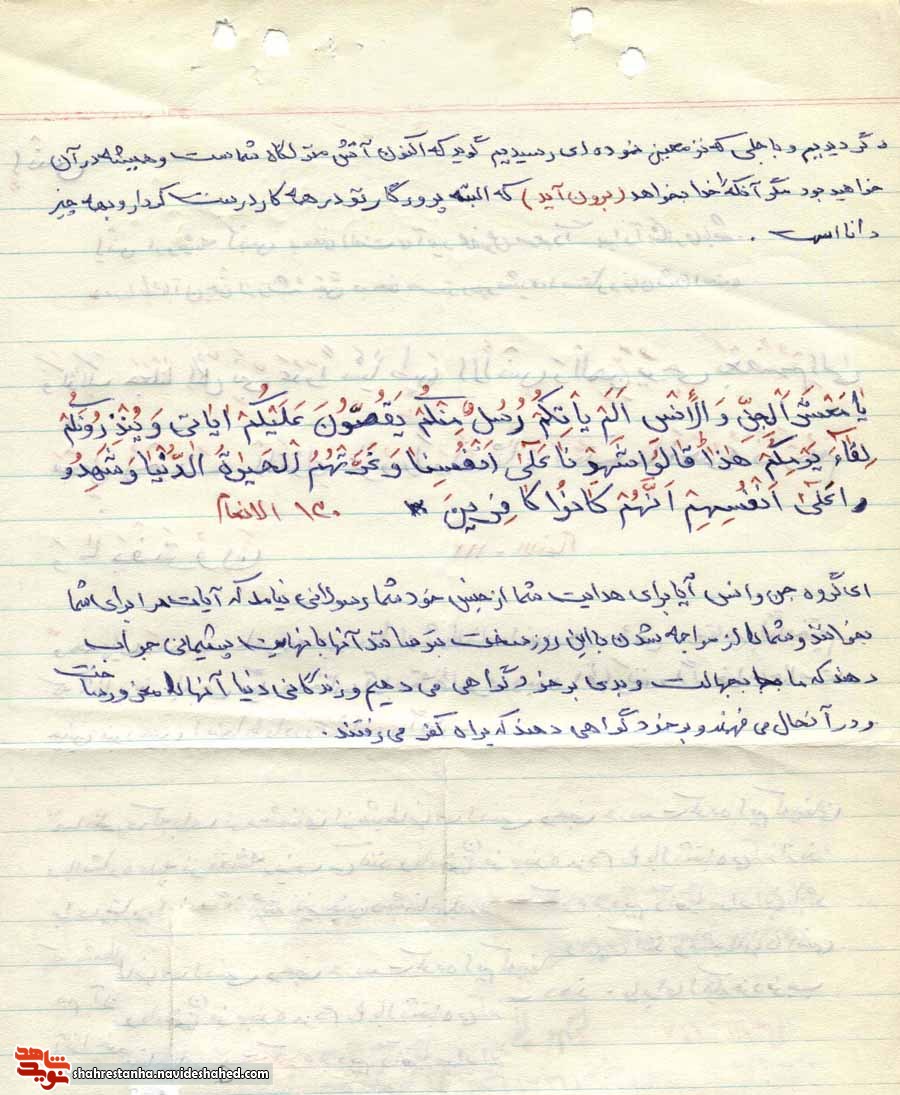 گردیدیم و باجلی که تو معین نموده ای رسیدیم گوید که اکنون آتش منزلگاه شماست و همیشه در آن
خواهید بود مگر آنکه خدا بخواهد (برون آید) که البته پروردگار تو در همه کار درست کردار و بهمه چیز
دانا است .
یا مَعْشَرَ الْجِنِّ وَ الْأِنْسِ اَلَمْ یَأتِکُمْ رُسُلٌ مِنْکُمْ یَقُصُّونَ عَلَیْکُمْ ایاتی وَ یُنْذِرُونَکُمْ
لِقآءَ یَوْمِکُمْ هذا قالُوا شَهِدْ نا عَلی اَنْفُسِنا وَ غَرَّتْهُمُ الْحَیوةُ الدُّنْیا وَ شَهِدُو
ا عَلی اَنْفُسِهِمْ اَنَّهُمْ کانُوا کافِرینَ * ۱۳۰ الانعام
ای گروه جن و انس آیا برای هدایت شما از جنس خود شما رسولانی نیامد که آیات مرا برای شما
بخوانند و شما را از مواجه شدن با این روز سخت بترسانند آنها با نهایت پشیمانی جواب
دهند که ما بجهالت و بدی بر خود گواهی می دهیم و زندگانی دنیا آنها را مغرور ساخت
و در آنحال می فهمند و بر خود گواهی دهند که براه کفر می رفتند .
نوید شاهد
shahrestanha.navideshahed.com